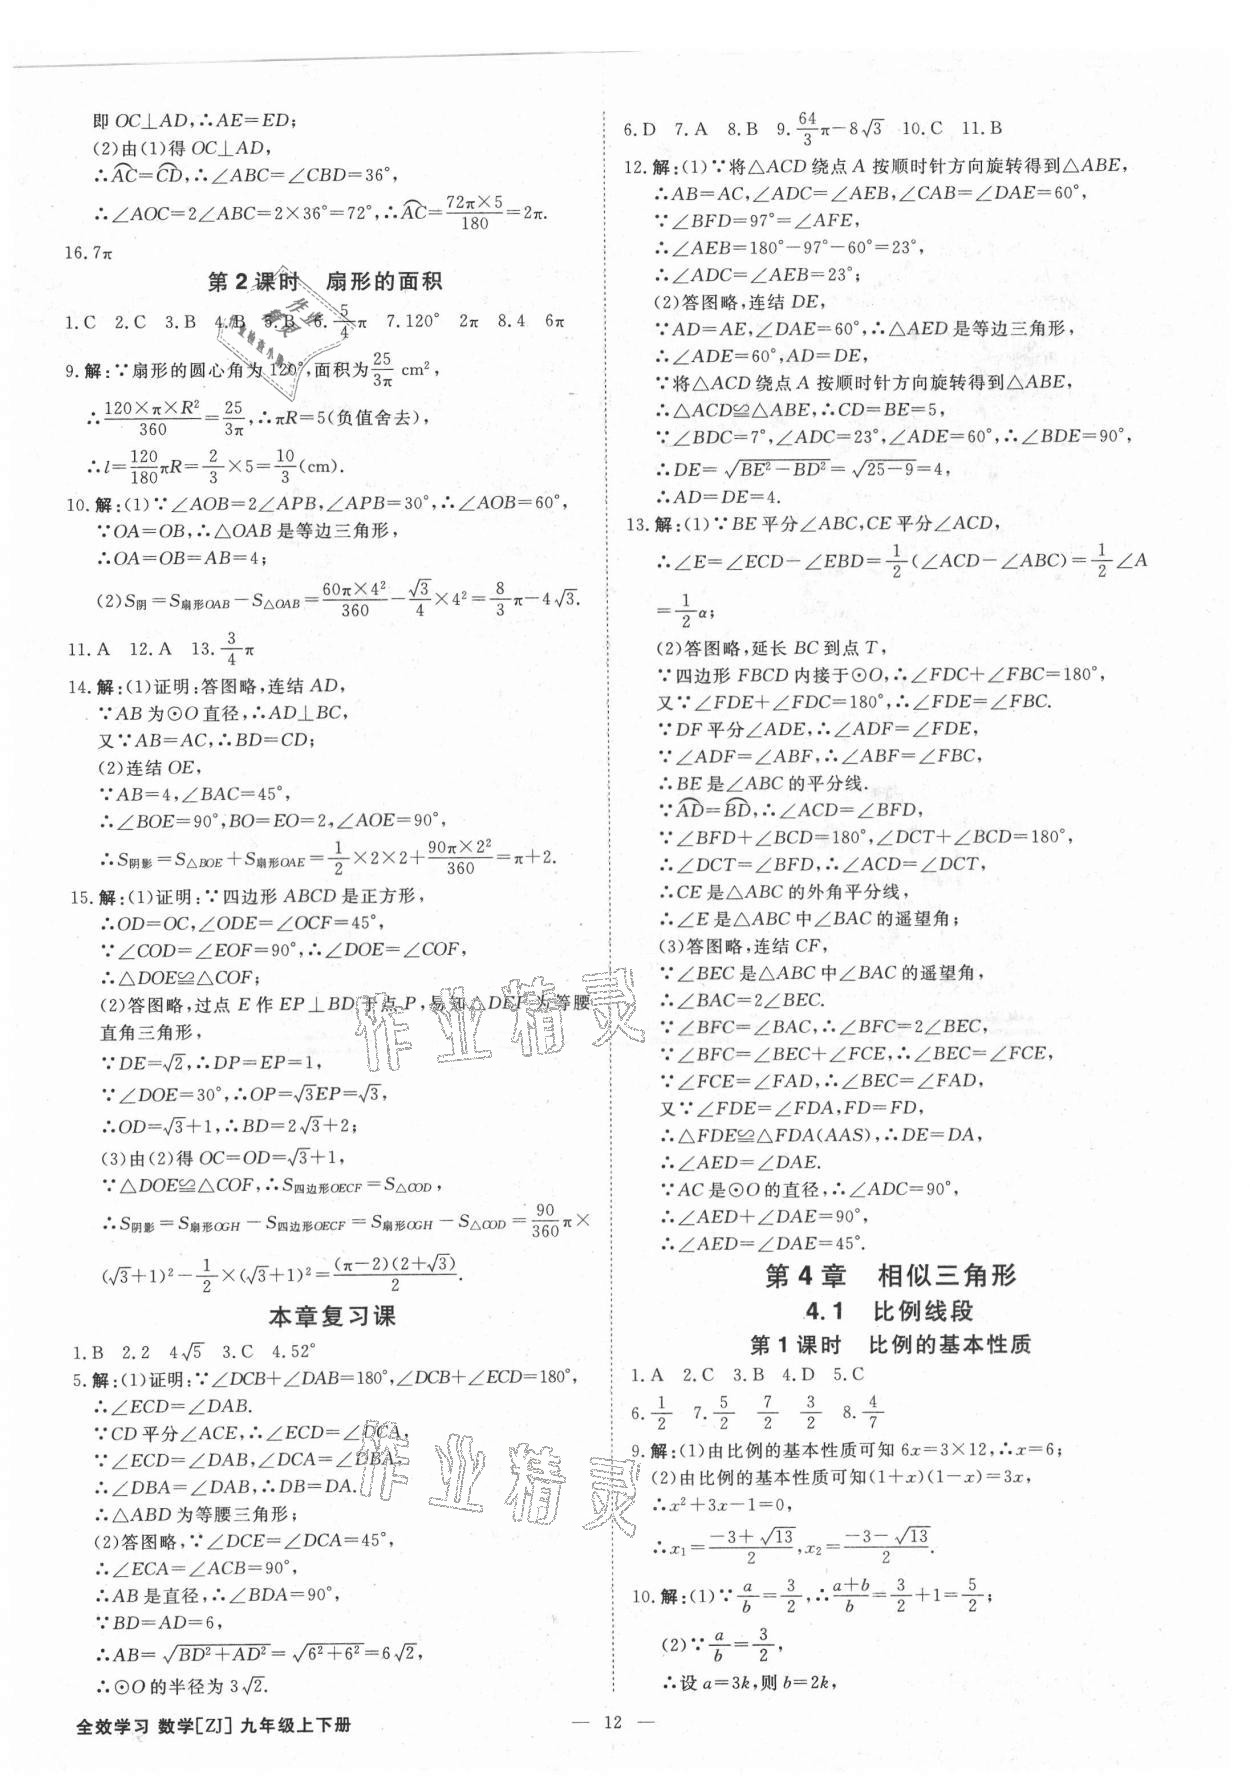 即 OC⊥AD,∴AE=ED;
(2)由(1)得 OC⊥AD,
∴A͡C=C͡D,∴∠ABC=∠CBD=36°,
∴∠AOC=2∠ABC=2×36°=72°,∴A͡C=72π×5/180=2π.
16.7π
第2课时 扇形的面积
1.C 2.C 3.B 4.B 5.B 6.5/4π 7.120° 2π 8.4 6π
9.解:∵扇形的圆心角为120°,面积为25/3π cm²,
∴120×π×R²/360=25/3π,∴πR=5(负值舍去),
∴l=120/180πR=2/3×5=10/3(cm).
10.解:(1)∵∠AOB=2∠APB,∠APB=30°,∴∠AOB=60°,
∵OA=OB,∴△OAB是等边三角形,
∴OA=OB=AB=4;
(2)S阴=S扇形OAB−S△OAB=60π×4²/360−√3/4×4²=8/3π−4√3.
11.A 12.A 13.3/4π
14.解:(1)证明:答图略,连结AD,
∵AB为⊙O直径,∴AD⊥BC,
又∵AB=AC,∴BD=CD;
(2)连结OE,
∵AB=4,∠BAC=45°,
∴∠BOE=90°,BO=EO=2,∠AOE=90°,
∴S阴影=S△BOE+S扇形OAE=1/2×2×2+90π×2²/360=π+2.
15.解:(1)证明:∵四边形ABCD是正方形,
∴OD=OC,∠ODE=∠OCF=45°,
∵∠COD=∠EOF=90°,∴∠DOE=∠COF,
∴△DOE≌△COF;
(2)答图略,过点E作EP⊥BD于点P,易知△DEP为等腰
直角三角形,
∵DE=√2,∴DP=EP=1,
∵∠DOE=30°,∴OP=√3EP=√3,
∴OD=√3+1,∴BD=2√3+2;
(3)由(2)得OC=OD=√3+1,
∵△DOE≌△COF,∴S四边形OECF=S△COD,
∴S阴影=S扇形OGH−S四边形OECF=S扇形OGH−S△COD=90/360π×
(√3+1)²−1/2×(√3+1)²=(π−2)(2+√3)/2.
本章复习课
1.B 2.2 4√5 3.C 4.52°
5.解:(1)证明:∵∠DCB+∠DAB=180°,∠DCB+∠ECD=180°,
∴∠ECD=∠DAB.
∵CD平分∠ACE,∴∠ECD=∠DCA,
∵∠ECD=∠DAB,∠DCA=∠DBA,
∴∠DBA=∠DAB,∴DB=DA.
∴△ABD为等腰三角形;
(2)答图略,∵∠DCE=∠DCA=45°,
∴∠ECA=∠ACB=90°,
∴AB是直径,∴∠BDA=90°,
∵BD=AD=6,
∴AB=√(BD²+AD²)=√(6²+6²)=6√2,
∴⊙O的半径为3√2.
6.D 7.A 8.B 9.64/3π−8√3 10.C 11.B
12.解:(1)∵将△ACD绕点A按顺时针方向旋转得到△ABE,
∴AB=AC,∠ADC=∠AEB,∠CAB=∠DAE=60°,
∵∠BFD=97°=∠AFE,
∴∠AEB=180°−97°−60°=23°,
∴∠ADC=∠AEB=23°;
(2)答图略,连结DE,
∵AD=AE,∠DAE=60°,∴△AED是等边三角形,
∴∠ADE=60°,AD=DE,
∵将△ACD绕点A按顺时针方向旋转得到△ABE,
∴△ACD≌△ABE,∴CD=BE=5,
∵∠BDC=7°,∠ADC=23°,∠ADE=60°,∴∠BDE=90°,
∴DE=√(BE²−BD²)=√(25−9)=4,
∴AD=DE=4.
13.解:(1)∵BE平分∠ABC,CE平分∠ACD,
∴∠E=∠ECD−∠EBD=1/2(∠ACD−∠ABC)=1/2∠A
=1/2α;
(2)答图略,延长BC到点T,
∵四边形FBCD内接于⊙O,∴∠FDC+∠FBC=180°,
又∵∠FDE+∠FDC=180°,∴∠FDE=∠FBC.
∵DF平分∠ADE,∴∠ADF=∠FDE,
∵∠ADF=∠ABF,∴∠ABF=∠FBC,
∴BE是∠ABC的平分线.
∵A͡D=B͡D,∴∠ACD=∠BFD,
∵∠BFD+∠BCD=180°,∠DCT+∠BCD=180°,
∴∠DCT=∠BFD,∴∠ACD=∠DCT,
∴CE是△ABC的外角平分线,
∴∠E是△ABC中∠BAC的遥望角;
(3)答图略,连结CF,
∵∠BEC是△ABC中∠BAC的遥望角,
∴∠BAC=2∠BEC.
∵∠BFC=∠BAC,∴∠BFC=2∠BEC,
∵∠BFC=∠BEC+∠FCE,∴∠BEC=∠FCE,
∵∠FCE=∠FAD,∴∠BEC=∠FAD,
又∵∠FDE=∠FDA,FD=FD,
∴△FDE≌△FDA(AAS),∴DE=DA,
∴∠AED=∠DAE.
∵AC是⊙O的直径,∴∠ADC=90°,
∴∠AED+∠DAE=90°,
∴∠AED=∠DAE=45°.
第4章 相似三角形
4.1 比例线段
第1课时 比例的基本性质
1.A 2.C 3.B 4.D 5.C
6.1/2 7.5/2 7/2 3/2 8.4/7
9.解:(1)由比例的基本性质可知6x=3×12,∴x=6;
(2)由比例的基本性质可知(1+x)(1−x)=3x,
∴x²+3x−1=0,
∴x₁=(−3+√13)/2,x₂=(−3−√13)/2.
10.解:(1)∵a/b=3/2,∴(a+b)/b=3/2+1=5/2;
(2)∵a/b=3/2,
∴设a=3k,则b=2k,
全效学习 数学[ZJ] 九年级上下册
— 12 —
作业精灵
作业精灵